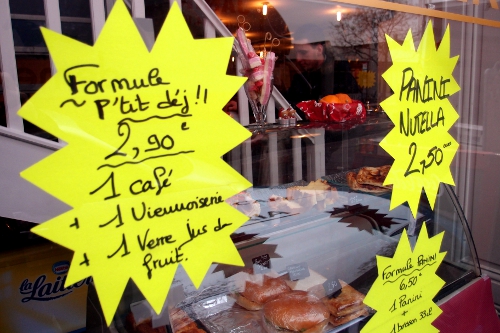 Formule
~ P'tit déj !!
2,90€
1 café
+ 1 Viennoiserie
+ 1 Verre jus de
fruit.
PANINI
NUTELLA
2,50
Formule Panini
6,50€
1 Panini
+ 1 boisson 33cl
la
Laitière